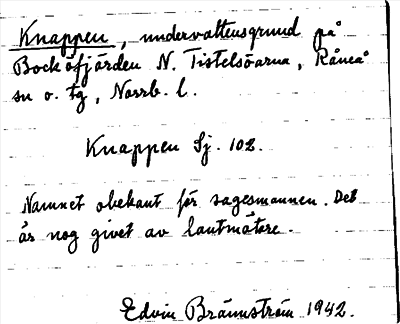 Knappen, undervattensgrund på
Bocköfjärden N. Tistelsöarna, Råneå
sn o. tg, Norrb. l.
Knappen Sj. 102.
Namnet obekant för sagesmannen. Det
är nog givet av lantmätare.
Edvin Brännström 1942.